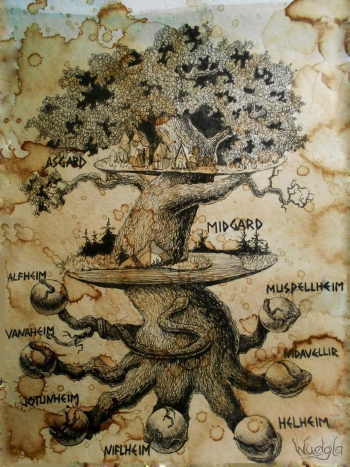 ASGARD
MIDGARD
ALFHEIM
MUSPELLHEIM
VANAHEIM
NIDAVELLIR
JOTUNHEIM
HELHEIM
NIFLHEIM